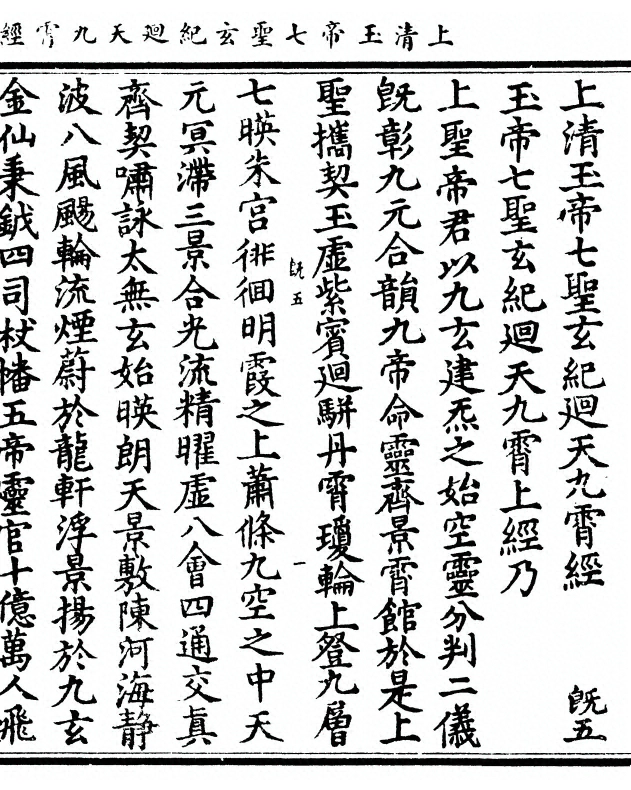 上清玉帝七聖玄紀廻天九霄經
上清玉帝七聖玄紀廻天九霄經 旣五
玉帝七聖玄紀廻天九霄上經乃
上聖帝君以九玄建炁之始空靈分判二儀
旣彰九元合韻九帝命靈齊景霄館於是上
聖攜契玉虛紫賓廻駢丹霄瓊輪上登九層
旣五 一
七暎朱宮徘徊明霞之上蕭條九空之中天
元冥滯三景合光流精曜虛八會四通交真
齊契嘯詠太無玄始暎朗天景敷陳河海靜
波八風颺輪流煙蔚於龍軒浮景揚於九玄
金仙秉鉞四司杖幡五帝靈官十億萬人飛